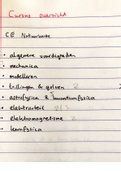 Cursus overzicht
CE Natuurkunde
• algemene vaardigheden
• mechanica
• modelleren
• trillingen & golven
• astrofysica &
• elektriciteit
• elektromagnetisme
• kernfysica